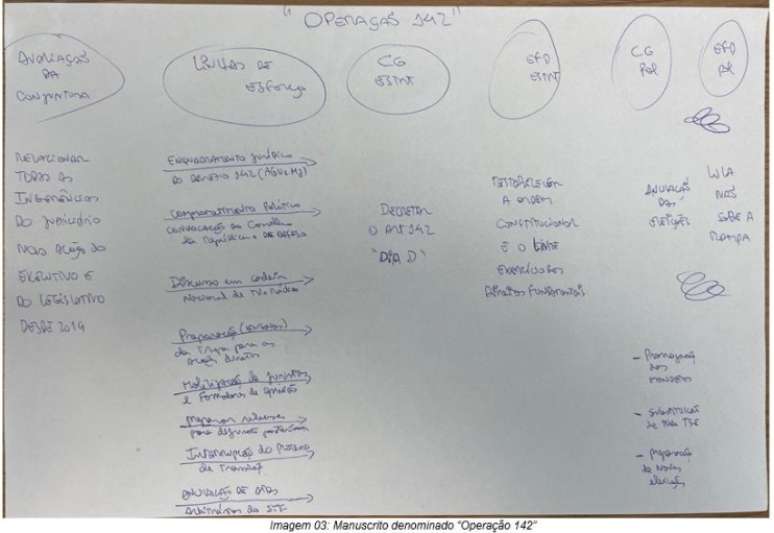 "OPERAÇÃO 142"
AVALIAÇÃO
DA
CONJUNTURA
LINHAS DE
ESFORÇO
CG
ESTRT
EFD
ESTRT
CG
POL
EFD
POL
RELACIONAR
TODAS AS
INGERÊNCIAS
DO JUDICIÁRIO
NAS AÇÕES DO
EXECUTIVO E
DO LEGISLATIVO
DESDE 2019
ENQUADRAMENTO JURÍDICO
DO DECRETO 142 (AGU e MJ)
COMPROMETIMENTO POLÍTICO
CONVOCAÇÃO do Conselho
da República e DA DEFESA
Discurso em cadeia
Nacional de TV e Rádio
Preparação
da Tropa para as
ações diretas
Mobilização de juristas
e Formadores de opinião
Preparar
para
Interrupção do Processo
de Transição
ANULAÇÃO DE ATOS
Arbitrários do STF
DECRETAR
O ART 142
"DIA D"
RESTABELECER
A ORDEM
CONSTITUCIONAL
E O LIVRE
EXERCÍCIO DOS
DIREITOS FUNDAMENTAIS
ANULAÇÃO
DAS
ELEIÇÕES
LULA
NÃO
SOBE A
RAMPA
- Prorrogação
dos
mandatos
- Substituição
de todo TSE
- Preparação
de Novas
eleições
Imagem 03: Manuscrito denominado "Operação 142"